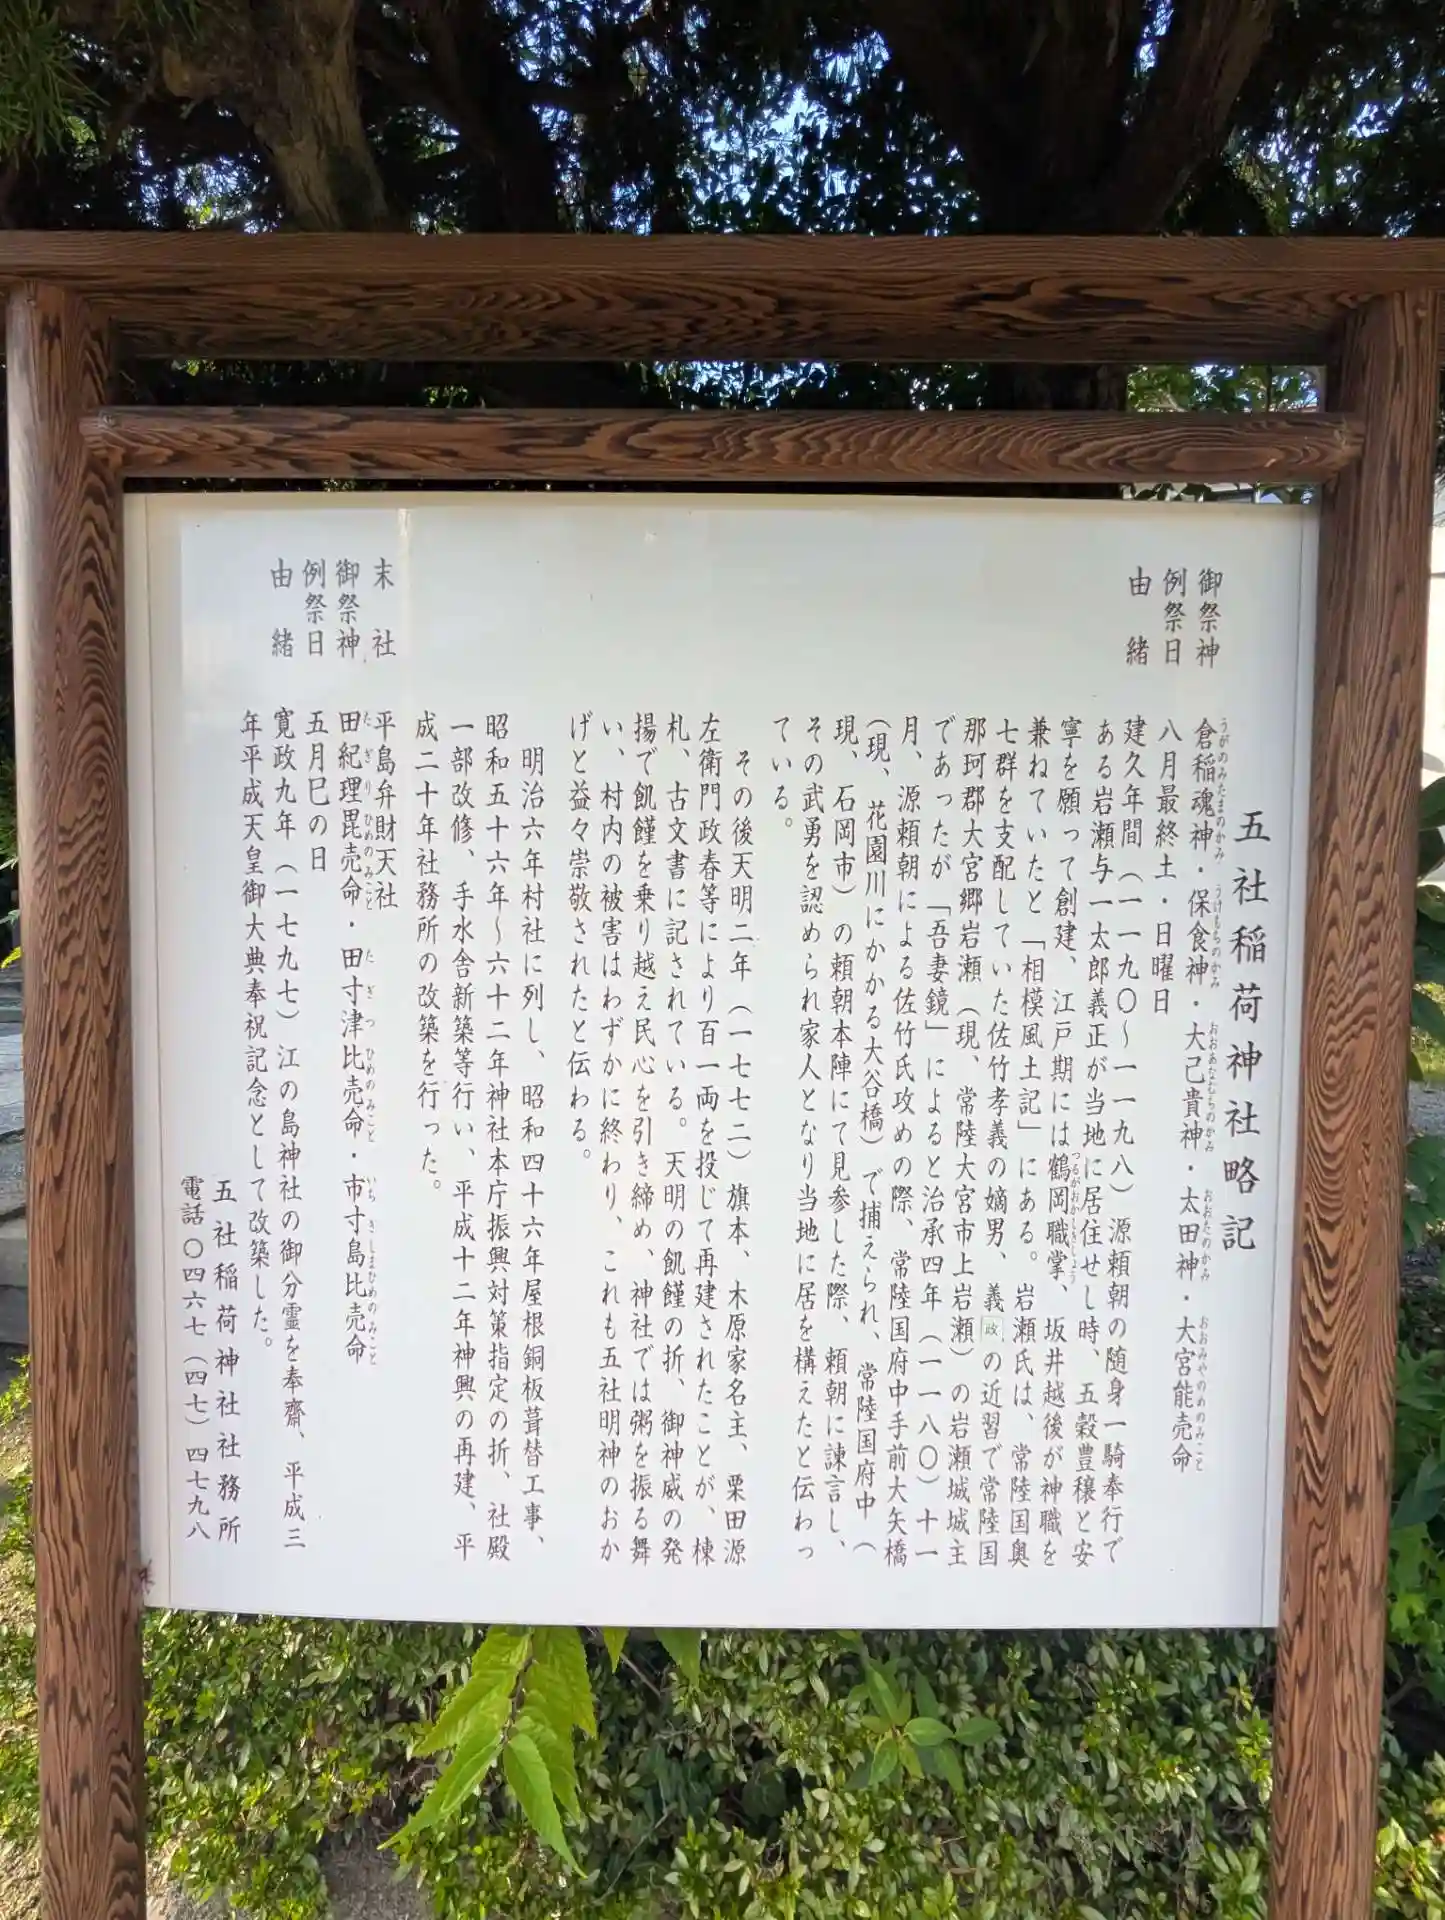 五社稲荷神社略記
御祭神 倉稲魂神・保食神・大己貴神・太田神・大宮能売命
うがのみたまのかみ うけもちのかみ おおあなむちのかみ おおたのかみ おおみやのめのみこと
例祭日 八月最終土・日曜日
由緒 建久年間(一一九〇〜一一九八)源頼朝の随身一騎奉行で
ある岩瀬与一太郎義正が当地に居住せし時、五穀豊穣と安
寧を願って創建、江戸期には鶴岡職掌、坂井越後が神職を
つるがおかしきしょう
兼ねていたと「相模風土記」にある。岩瀬氏は、常陸国奥
七群を支配していた佐竹孝義の嫡男、義政の近習で常陸国
那珂郡大宮郷岩瀬(現、常陸大宮市上岩瀬)の岩瀬城城主
であったが「吾妻鏡」によると治承四年(一一八〇)十一
月、源頼朝による佐竹氏攻めの際、常陸国府中手前大矢橋
(現、花園川にかかる大谷橋)で捕えられ、常陸国府中(
現、石岡市)の頼朝本陣にて見参した際、頼朝に諫言し、
その武勇を認められ家人となり当地に居を構えたと伝わっ
ている。
その後天明二年(一七七二)旗本、木原家名主、栗田源
左衛門政春等により百一両を投じて再建されたことが、棟
札、古文書に記されている。天明の飢饉の折、御神威の発
揚で飢饉を乗り越え民心を引き締め、神社では粥を振る舞
い、村内の被害はわずかに終わり、これも五社明神のおか
げと益々崇敬されたと伝わる。
明治六年村社に列し、昭和四十六年屋根銅板葺替工事、
昭和五十六年〜六十二年神社本庁振興対策指定の折、社殿
一部改修、手水舎新築等行い、平成十二年神興の再建、平
成二十年社務所の改築を行った。
末社 平島弁財天社
御祭神 田紀理毘売命・田寸津比売命・市寸島比売命
たぎりひめのみこと たぎつひめのみこと いちきしまひめのみこと
例祭日 五月巳の日
由緒 寛政九年(一七九七)江の島神社の御分霊を奉齋、平成三
年平成天皇御大典奉祝記念として改築した。
五社稲荷神社社務所
電話〇四六七(四七)四七九八